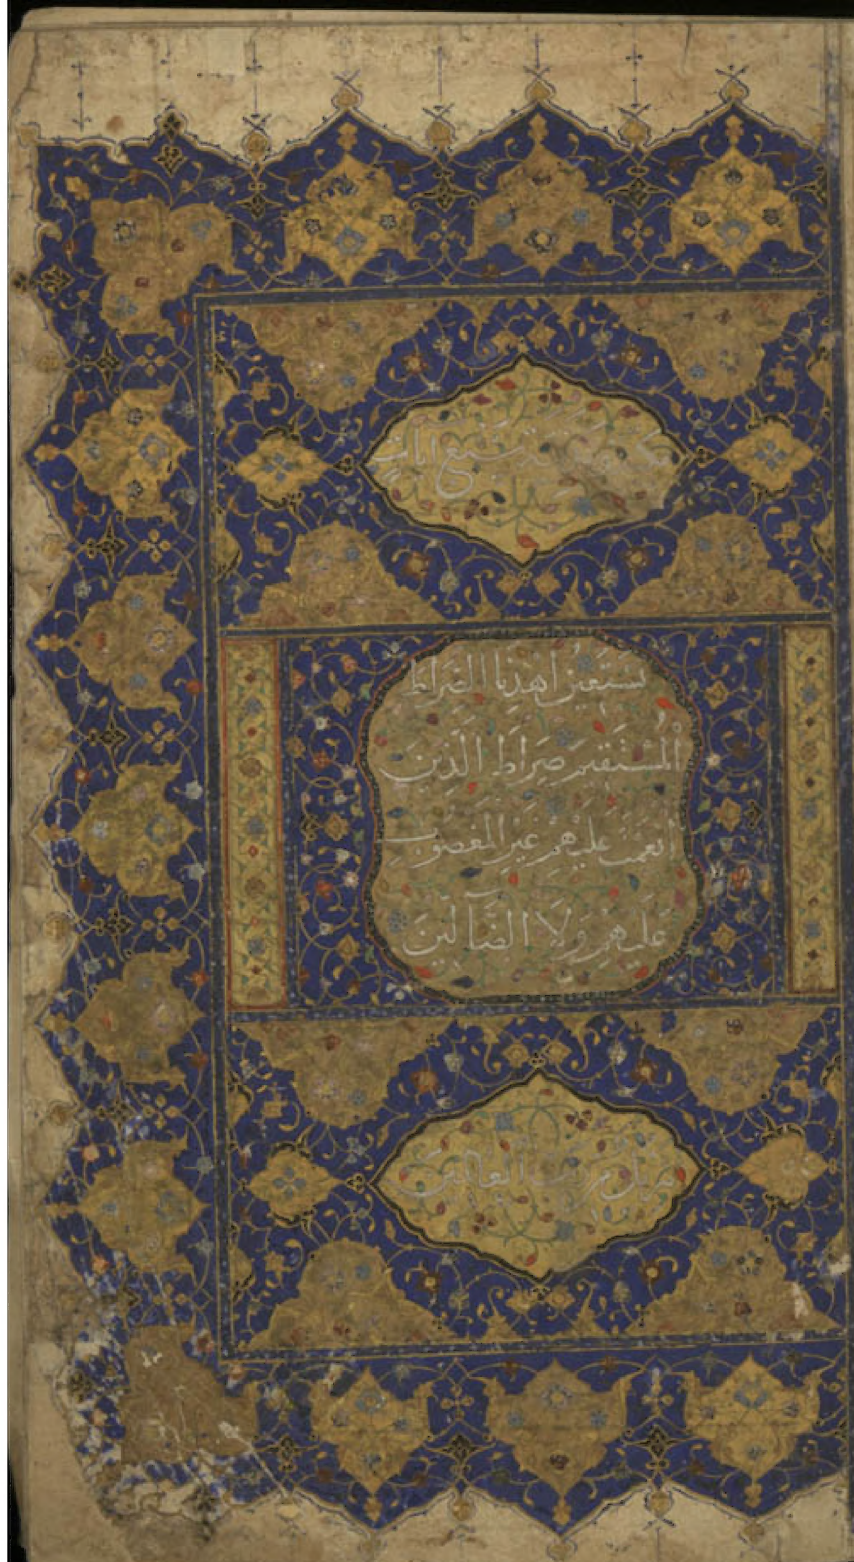 سبع ايات
نَسْتَعِينُ اهْدِنَا الصِّرَاطَ
الْمُسْتَقِيمَ صِرَاطَ الَّذِينَ
أَنْعَمْتَ عَلَيْهِمْ غَيْرِ الْمَغْضُوبِ
عَلَيْهِمْ وَلَا الضَّآلِّينَ
من رب العالمين